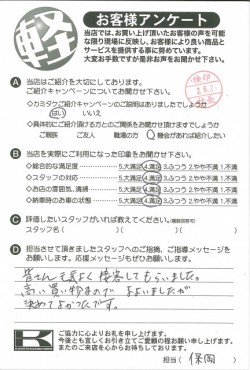 軽
お客様アンケート
当店では、お買い上げ頂いたお客様の声を可能
な限り現場に反映し、お客様により良い商品と
サービスを提供する事に努めています。
大変お手数ですが是非お声をお聞かせ下さい。
A 当店はご紹介を大切にしております。
ご紹介キャンペーンについてお聞かせ下さい
◇カミタケご紹介キャンペーンのご説明はありましたでしょうか
はい いいえ
◇具体的にご紹介頂ける方とのご関係をお聞かせ頂けますでしょうか
ご親族 ご友人 職場の方 機会があれば紹介したい
B 当店を実際にご利用になった印象をお聞かせ下さい。
◇総合的な満足度 5.大満足 4.満足 3.ふつう 2.やや不満 1.不満
◇スタッフの対応 5.大満足 4.満足 3.ふつう 2.やや不満 1.不満
◇お店の雰囲気、清掃 5.大満足 4.満足 3.ふつう 2.やや不満 1.不満
◇納車時のお車の状態 5.大満足 4.満足 3.ふつう 2.やや不満 1.不満
C 評価したいスタッフがいれば教えてください。(複数回答可)
スタッフ名( )( )( )
D 担当させて頂きましたスタッフへのご指摘、ご指導メッセージを
お願いします。応援メッセージもぜひお願いします。
皆さん気持よく接客してもらいました。
高い買い物なので まよいましたが
決めてよかったです。
K
ご協力に心よりお礼を申し上げます。
今後とも宜しくお引き立てご愛顧の程お願い申し上げます。
またのご来店を心からお待ちしております。
担当( 保岡 )